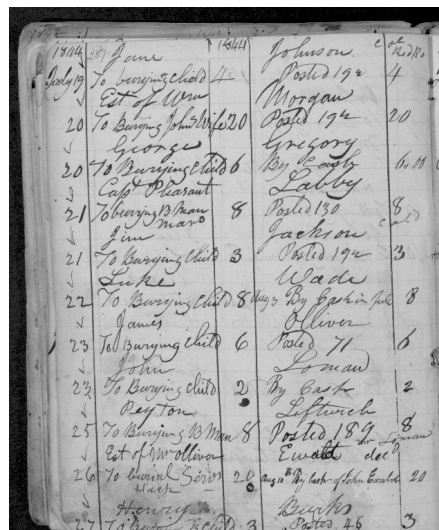 1844 Jane 1844 Johnson
July 19 To burying child 4 Posted 192 4
Est of Wm Morgan
20 To Burying John's Wife 20 Posted 192 20
George Gregory
20 To Burying Child 6 By Cash 6.00
Capt Pleasant Labby
21 To burying B Man 8 Posted 130 8
Jim Jackson
21 To Burying Child 3 Posted 192 3
Luke Wade
22 To Burying Child 8 Aug 3 By Cash in full 8
James Olliver
23 To Burying Child 6 Posted 71 6
John Loman
23 To Burying Child 2 By Cash 2
Peyton Leftwich
25 To Burying B Man 8 Posted 189 8
Est of Ewald decd
26 To burial 20 Aug 10th By Cash of John Ewald 20
Henry Burks
27 Child 3 Posted 46 3